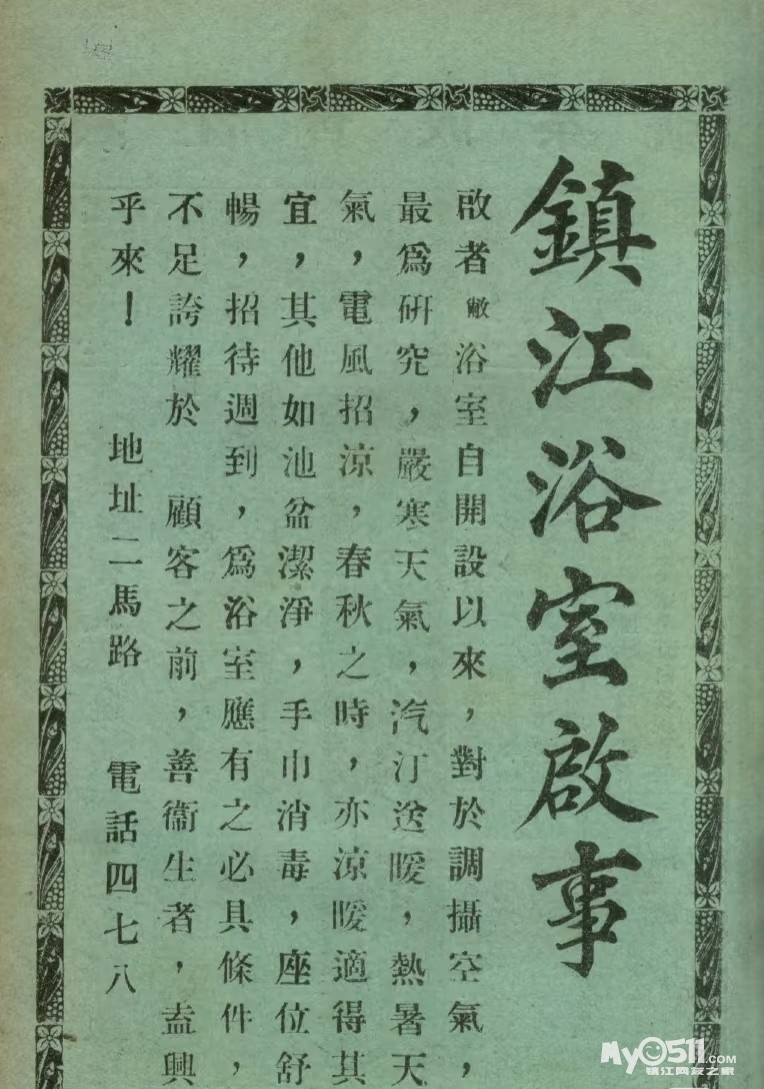 鎮江浴室啟事
啟者敝浴室自開設以來，對於調攝空氣，
最爲研究，嚴寒天氣，汽汀送暖，熱暑天
氣，電風招涼，春秋之時，亦涼暖適得其
宜，其他如池盆潔淨，手巾消毒，座位舒
暢，招待週到，爲浴室應有之必具條件，
不足誇耀於　顧客之前，善衞生者，盍興
乎來！　地址二馬路　電話四七八
My0511.com
镇江网友之家